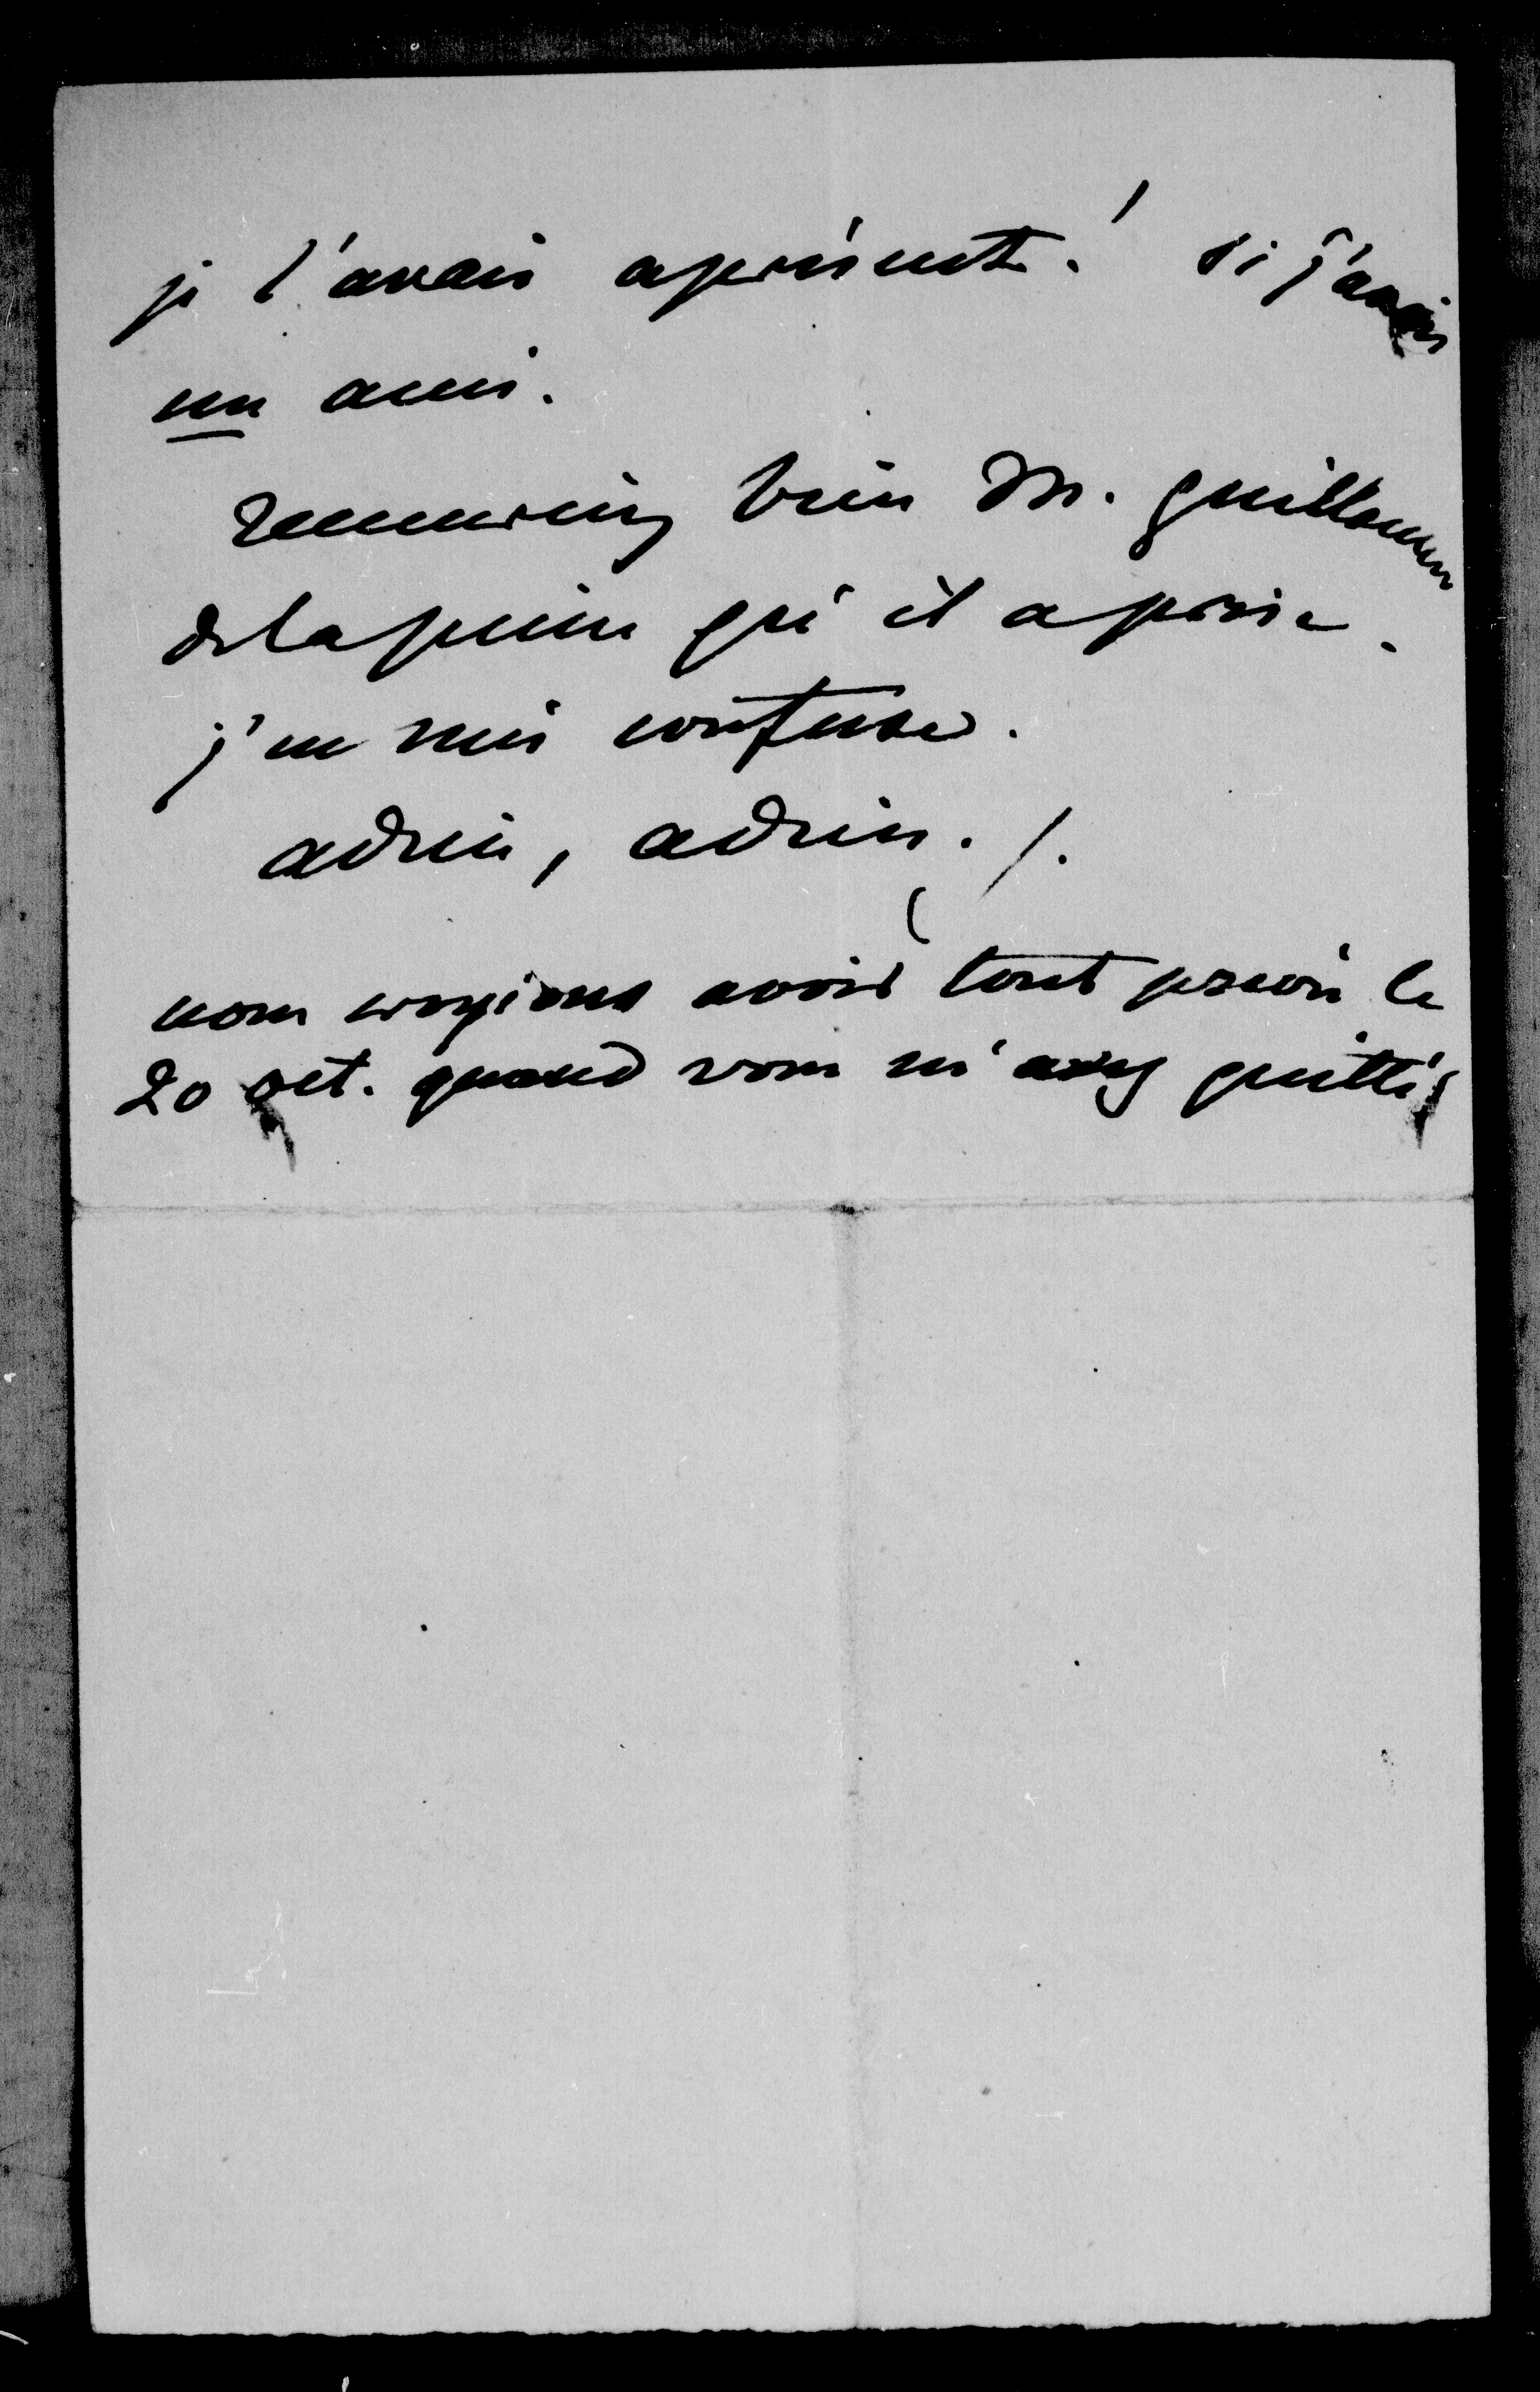 je l'avais à présent ! si j'avais
un ami.
remerciez bien M. guillaumin
de la peine qu'il a prise.
j'en suis confuse.
adieu, adieu. /.
nous croyions avoir tout prévu le
20 oct. quand vous m'avez quittée